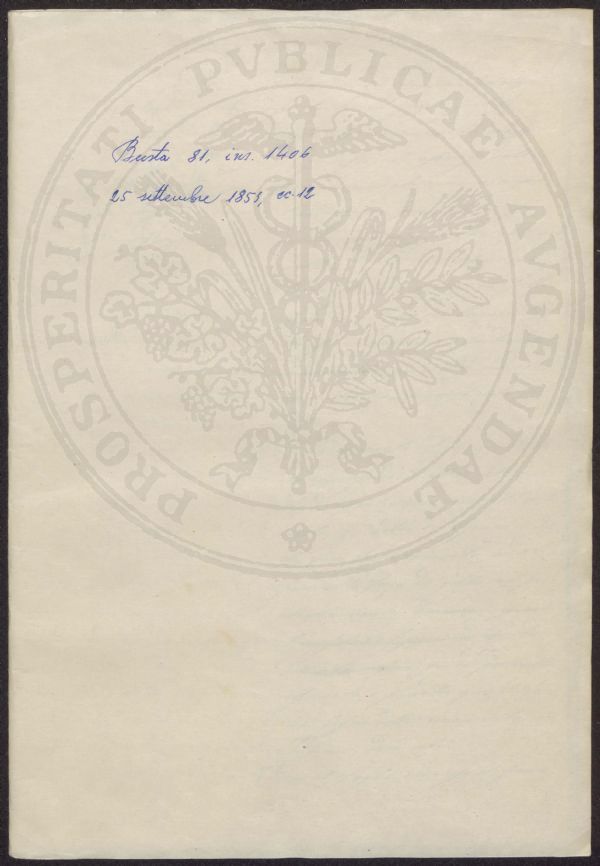 PROSPERITATI PVBLICAE AVGENDAE
Busta 81, ins. 1406
25 settembre 1851, cc. 12